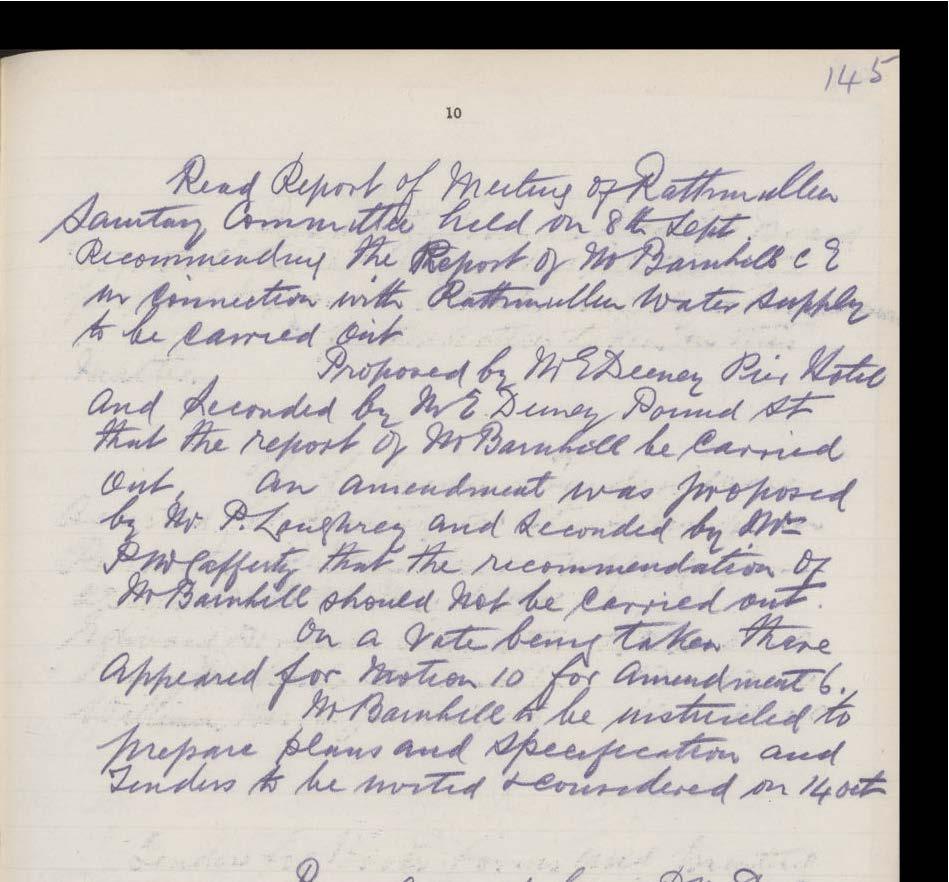 145
10
Read Report of Meeting of Rathmullen
Sanitary Committee held on 8th Sept
Recommending the Report of Mr Barnhill C E
in connection with Rathmullen Water Supply
to be carried out
Proposed by Mr E Deeney Pier Hotel
and Seconded by Mr E Deeney Pound St
that the report of Mr Barnhill be carried
out, an amendment was proposed
by Mr. P. Loughrey and Seconded by Mr
P McCafferty that the recommendation of
Mr Barnhill should not be carried out.
On a vote being taken there
appeared for motion 10 for amendment 6.
Mr Barnhill to be instructed to
prepare plans and specification and
Tenders to be invited & considered on 14 oct